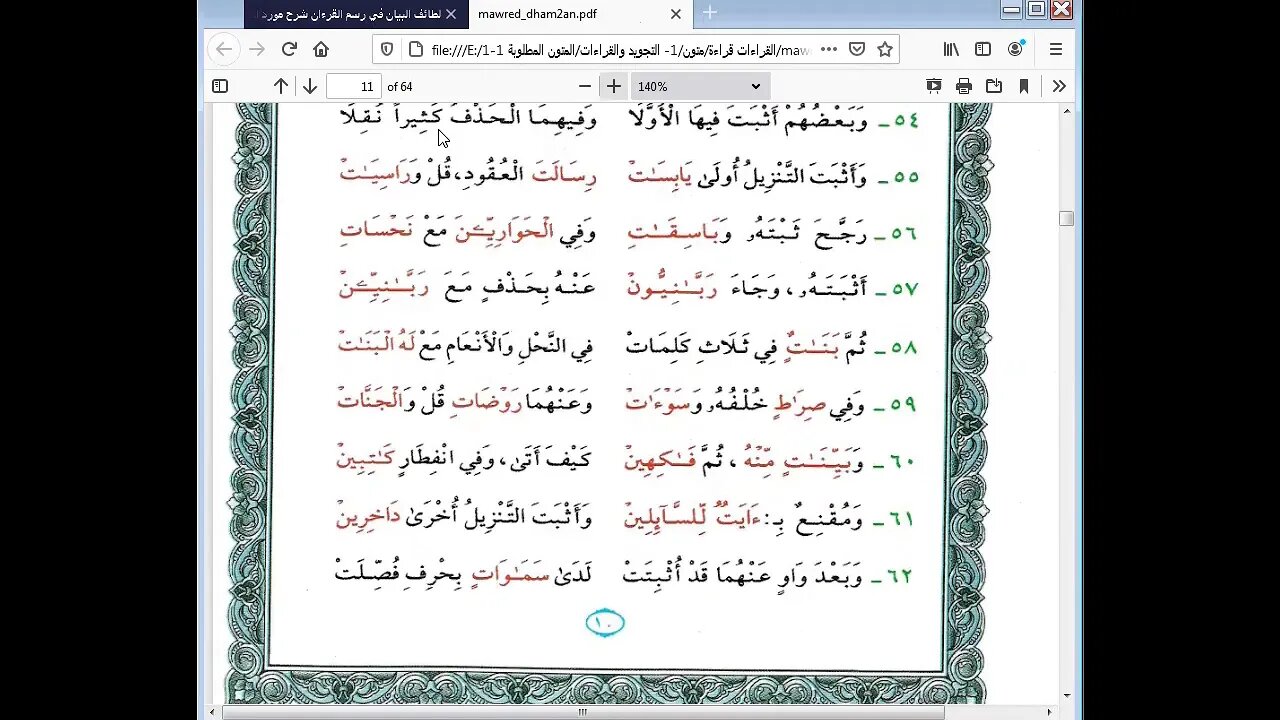 لطائف البيان في رسم القرءان شرح مورد
mawred_dham2an.pdf
file:///E:/1-1 التجويد والقراءات/المتون المطلوبة -1/القراءات قراءة/متون/maw
11 of 64
140%
٥٤ـ وَبَعْضُهُمْ أَثْبَتَ فِيهَا الْأَوَّلَا وَفِيهِمَا الْحَذْفَ كَثِيراً نَقِلَا
٥٥ـ وَأَثْبَتَ التَّنْزِيلُ أُولَىٰ يَابِسَٰتْ رِسَالَتَ الْعُقُودِ، قُلْ وَرَاسِيَٰتْ
٥٦ـ رَجَّحَ ثَبْتَهُۥ وَبَاسِقَٰتِ وَفِي الْحَوَارِيِّـۧنَ مَعْ نَحْسَاتِ
٥٧ـ أَثْبَتَهُۥ، وَجَاءَ رَبَّٰنِيُّونْ عَنْهُ بِحَذْفٍ مَعَ رَبَّٰنِيِّـۧنْ
٥٨ـ ثُمَّ بَنَٰتٌ فِي ثَلَاثِ كَلِمَاتْ فِي النَّحْلِ وَالْأَنْعَامِ مَعْ لَهُ الْبَنَٰتْ
٥٩ـ وَفِي صِرَٰطٍ خُلْفُهُۥ وَسَوْءَٰتْ وَعَنْهُمَا رَوْضَاتِ قُلْ وَالْجَنَّاتْ
٦٠ـ وَبَيِّنَٰتٍ مِّنْهُ ، ثُمَّ فَٰكِهِينْ كَيْفَ أَتَىٰ، وَفِي انْفِطَارٍ كَٰتِبِينْ
٦١ـ وَمُقْنِعٌ بِـ: ءَايَٰتٌ لِّلسَّآئِلِينْ وَأَثْبَتَ التَّنْزِيلُ أُخْرَىٰ دَاخِرِينْ
٦٢ـ وَبَعْدَ وَاوٍ عَنْهُمَا قَدْ أُثْبِتَتْ لَدَىٰ سَمَٰوَاتٍ بِحْرِفِ فُصِّلَتْ
١٠